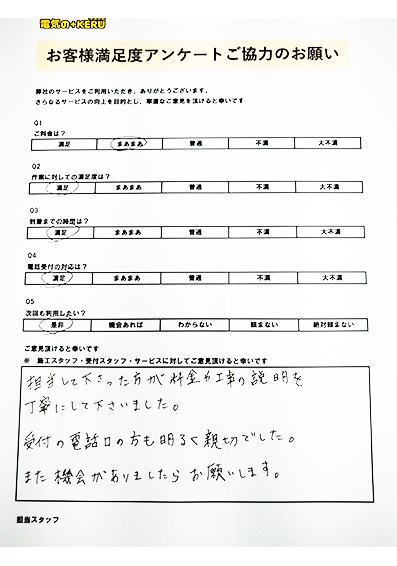 電気の+KERU
お客様満足度アンケートご協力のお願い
弊社のサービスをご利用いただき、ありがとうございます。
さらなるサービスの向上を目的とし、率直なご意見を頂けると幸いです
Q1
ご料金は？
満足 まあまあ 普通 不満 大不満
Q2
作業に対しての満足度は？
満足 まあまあ 普通 不満 大不満
Q3
到着までの時間は？
満足 まあまあ 普通 不満 大不満
Q4
電話受付の対応は？
満足 まあまあ 普通 不満 大不満
Q5
次回も利用したい？
是非 機会あれば わからない 頼まない 絶対頼まない
ご意見頂けると幸いです
※ 施工スタッフ・受付スタッフ・サービスに対してご意見頂けると幸いです
担当して下さった方が料金や工事の説明を
丁寧にして下さいました。
受付の電話口の方も明るく親切でした。
また機会がありましたらお願いします。
担当スタッフ